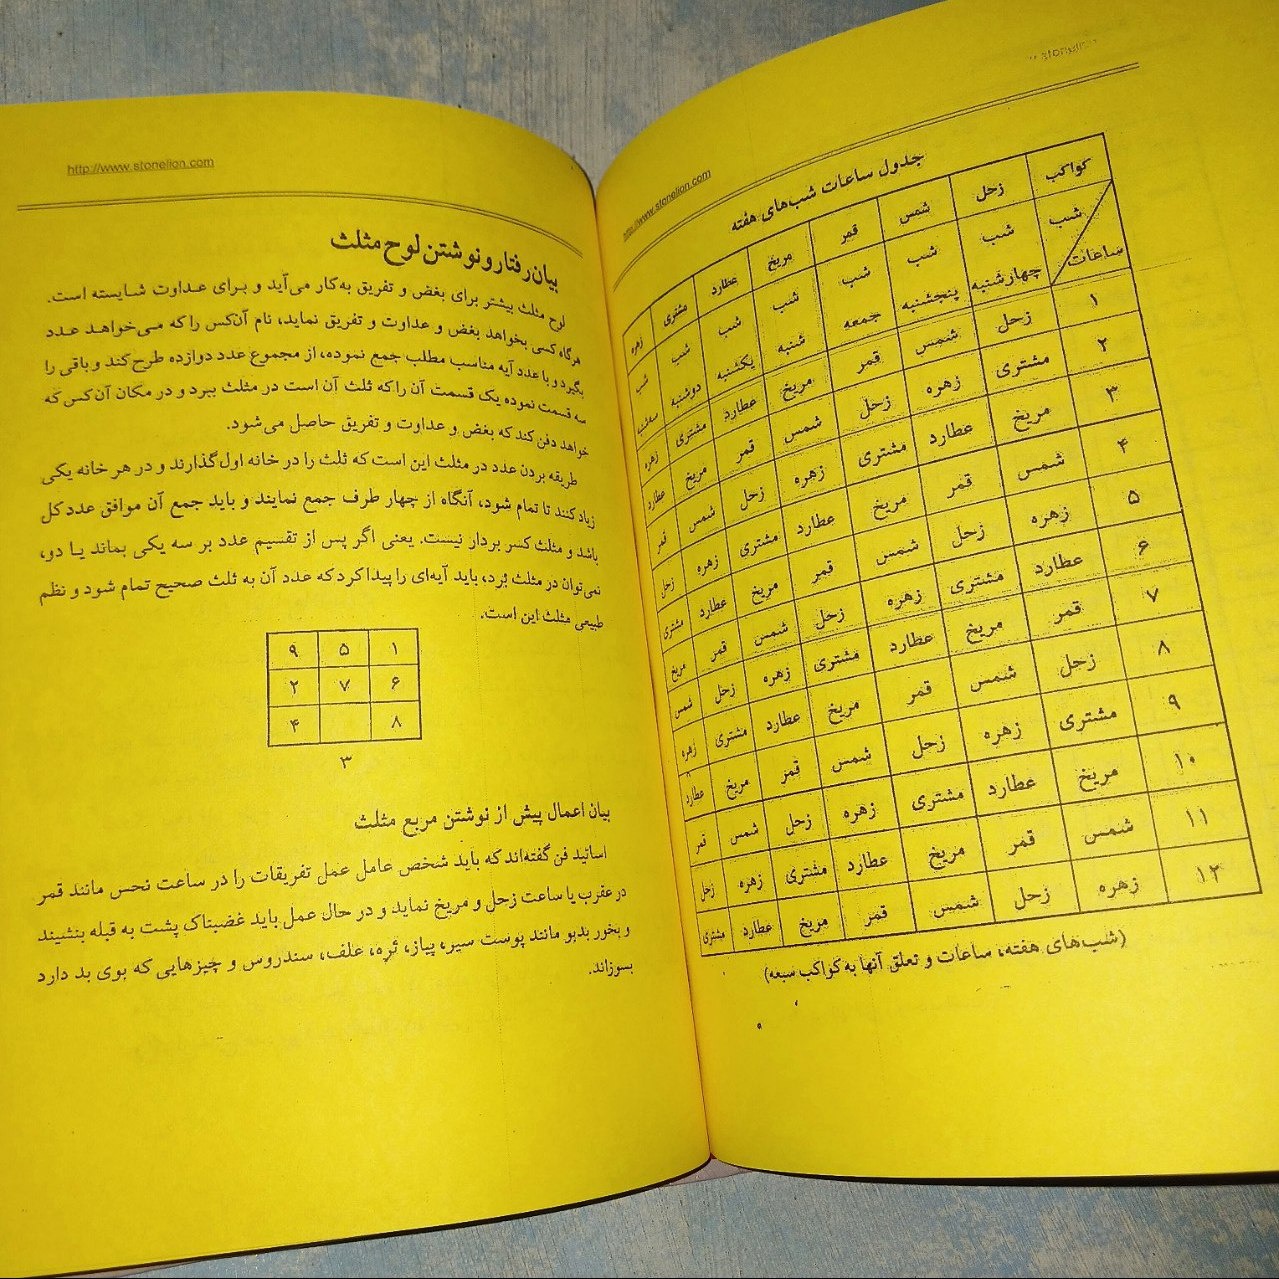 http://www.stonelion.com
جدول ساعات شب‌های هفته
کواکب زحل شمس قمر مریخ عطارد مشتری زهره
شب شب شب شب شب شب شب شب
ساعات چهارشنبه پنجشنبه جمعه شنبه یکشنبه دوشنبه سه‌شنبه
۱ زحل شمس قمر مریخ عطارد مشتری زهره
۲ مشتری زهره زحل شمس قمر مریخ عطارد
۳ مریخ عطارد مشتری زهره زحل شمس قمر
۴ شمس قمر مریخ عطارد مشتری زهره زحل
۵ زهره زحل شمس قمر مریخ عطارد مشتری
۶ عطارد مشتری زهره زحل شمس قمر مریخ
۷ قمر مریخ عطارد مشتری زهره زحل شمس
۸ زحل شمس قمر مریخ عطارد مشتری زهره
۹ مشتری زهره زحل شمس قمر مریخ عطارد
۱۰ مریخ عطارد مشتری زهره زحل شمس قمر
۱۱ شمس قمر مریخ عطارد مشتری زهره زحل
۱۲ زهره زحل شمس قمر مریخ عطارد مشتری
(شب‌های هفته، ساعات و تعلق آنها به کواکب سبعه)
http://www.stonelion.com
بیان رفتار و نوشتن لوح مثلث
لوح مثلث بیشتر برای بغض و تفریق به‌کار می‌آید و برای عداوت شایسته است.
هرگاه کسی بخواهد بغض و عداوت و تفریق نماید، نام آن‌کس را که می‌خواهد عدد
بگیرد و با عدد آیه مناسب مطلب جمع نموده، از مجموع عدد دوازده طرح کند و باقی را
سه قسمت نموده یک قسمت آن را که ثلث آن است در مثلث ببرد و در مکان آن‌کس که
خواهد دفن کند که بغض و عداوت و تفریق حاصل می‌شود.
طریقه بردن عدد در مثلث این است که ثلث را در خانه اول گذارند و در هر خانه یکی
زیاد کنند تا تمام شود، آنگاه از چهار طرف جمع نمایند و باید جمع آن موافق عدد کل
باشد و مثلث کسر بردار نیست. یعنی اگر پس از تقسیم عدد بر سه یکی بماند یا دو،
نمی‌توان در مثلث بُرد، باید آیه‌ای را پیدا کرد که عدد آن به ثلث صحیح تمام شود و نظم
طبیعی مثلث این است.
۱ ۵ ۹
۶ ۷ ۲
۸ ۴
۳
بیان اعمال پیش از نوشتن مربع مثلث
اساتید فن گفته‌اند که باید شخص عامل عمل تفریقات را در ساعت نحس مانند قمر
در عقرب یا ساعت زحل و مریخ نماید و در حال عمل باید غضبناک پشت به قبله بنشیند
و بخور بدبو مانند پوست سیر، پیاز، تَرِه، علف، سندروس و چیزهایی که بوی بد دارد
بسوزاند.